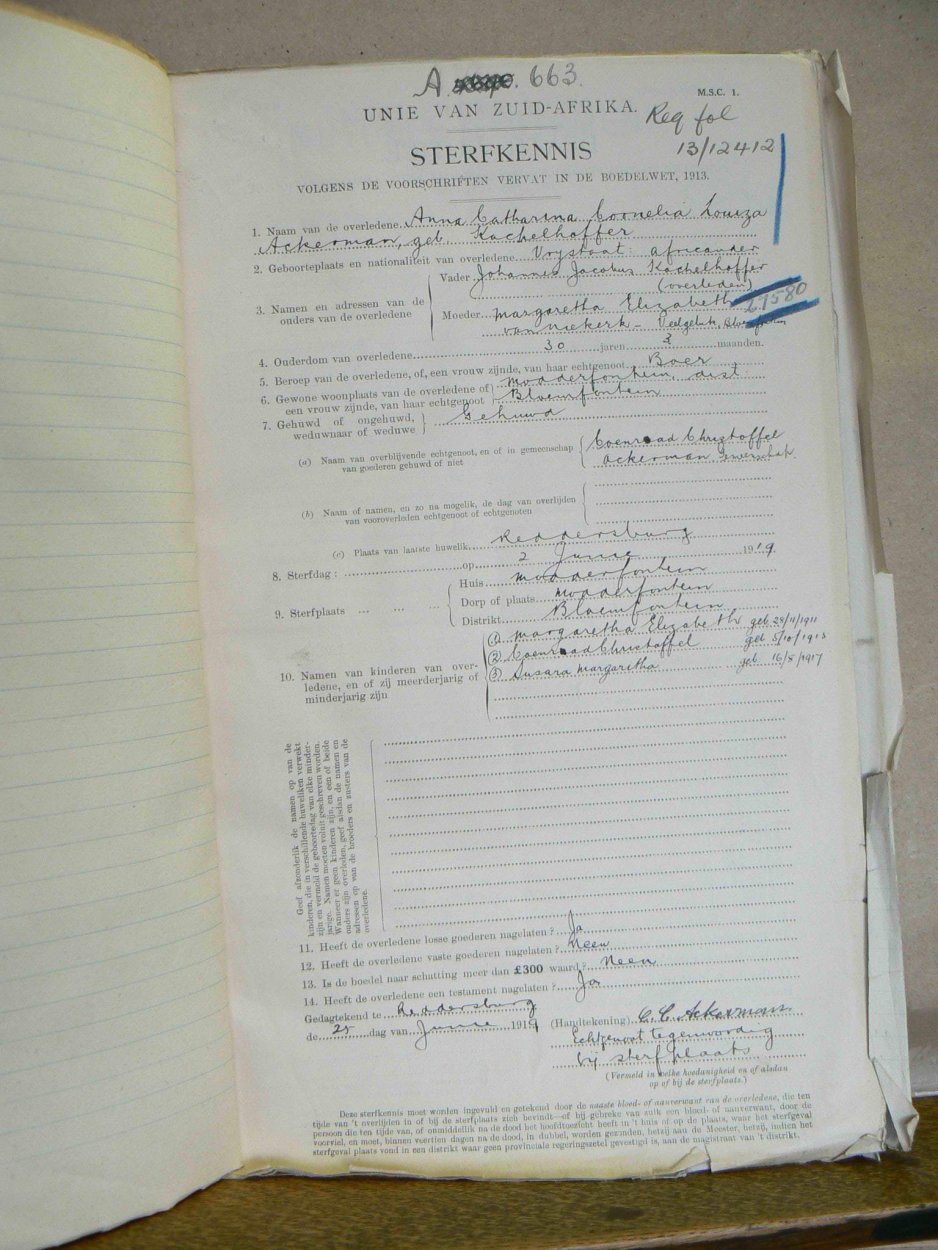 A 663.
M.S.C. 1.
UNIE VAN ZUID-AFRIKA.
Req fol
13/12412
STERFKENNIS
VOLGENS DE VOORSCHRIFTEN VERVAT IN DE BOEDELWET, 1913.
1. Naam van de overledene, Anna Catharina Cornelia Louiza
Ackerman, geb. Kachelhoffer
2. Geboorteplaats en nationaliteit van overledene Vrystaat africander
3. Namen en adressen van de ouders van de overledene
Vader Johannes Jacobus Kachelhoffer
(overleden)
Moeder Margaretha Elizabeth
van Niekerk -
27580
4. Ouderdom van overledene 30 jaren 3 maanden.
5. Beroep van de overledene, of, een vrouw zijnde, van haar echtgenoot Boer
6. Gewone woonplaats van de overledene of Modderfontein, dist.
een vrouw zijnde, van haar echtgenoot Bloemfontein
7. Gehuwd of ongehuwd, Gehuwd
weduwnaar of weduwe
(a) Naam van overblijvende echtgenoot, en of in gemeenschap Coenraad Christoffel
van goederen gehuwd of niet Ackerman,
(b) Naam of namen, en zo na mogelik, de dag van overlijden
van vooroverleden echtgenoot of echtgenoten
(c) Plaats van laatste huwelik Reddersburg
8. Sterfdag : op 2 Junie 1919
9. Sterfplaats ... ... ...
Huis Modderfontein
Dorp of plaats Modderfontein
Distrikt Bloemfontein
10. Namen van kinderen van over-
ledene, en of zij meerderjarig of
minderjarig zijn
(1) Margaretha Elizabeth geb 28/11/1911
(2) Coenraad Christoffel geb 5/10/1913
(3) Susara Margaretha geb 16/8/1917
Geef afzonderlik de namen op van de
kinderen, die in verschillende huweliken verwekt
zijn en vermeld de geboortedag van elke minder-
jarige. Namen moeten voluit geschreven worden.
Wanneer er geen kinderen zijn, en een of beide
ouders zijn overleden, geef alsdan de namen en
adressen op van de broeders en zusters van de
overledene.
11. Heeft de overledene losse goederen nagelaten ? Ja
12. Heeft de overledene vaste goederen nagelaten ? Neen
13. Is de boedel naar schatting meer dan £300 waard ? Neen
14. Heeft de overledene een testament nagelaten ? Ja
Gedagtekend te Reddersburg
de 25 dag van Junie 1919
(Handtekening) C. C. Ackerman
Echtgenoot tegenwoordig
bij sterfplaats
(Vermeld in welke hoedanigheid en of alsdan
op of bij de sterfplaats.)
Deze sterfkennis moet worden ingevuld en getekend door de naaste bloed- of aanverwant van de overledene, die ten
tijde van 't overlijden in of bij de sterfplaats zich bevindt—of bij gebreke van zulk een bloed- of aanverwant, door de
persoon die ten tijde van, of onmiddellik na de dood het hoofdtoezicht heeft in 't huis of op de plaats, waar het sterfgeval
voorviel, en moet, binnen veertien dagen na de dood, in dubbel, worden gezonden, hetzij aan de Meester, hetzij, indien het
sterfgeval plaats vond in een distrikt waar geen provinciale regeringszetel gevestigd is, aan de magistraat van 't distrikt.